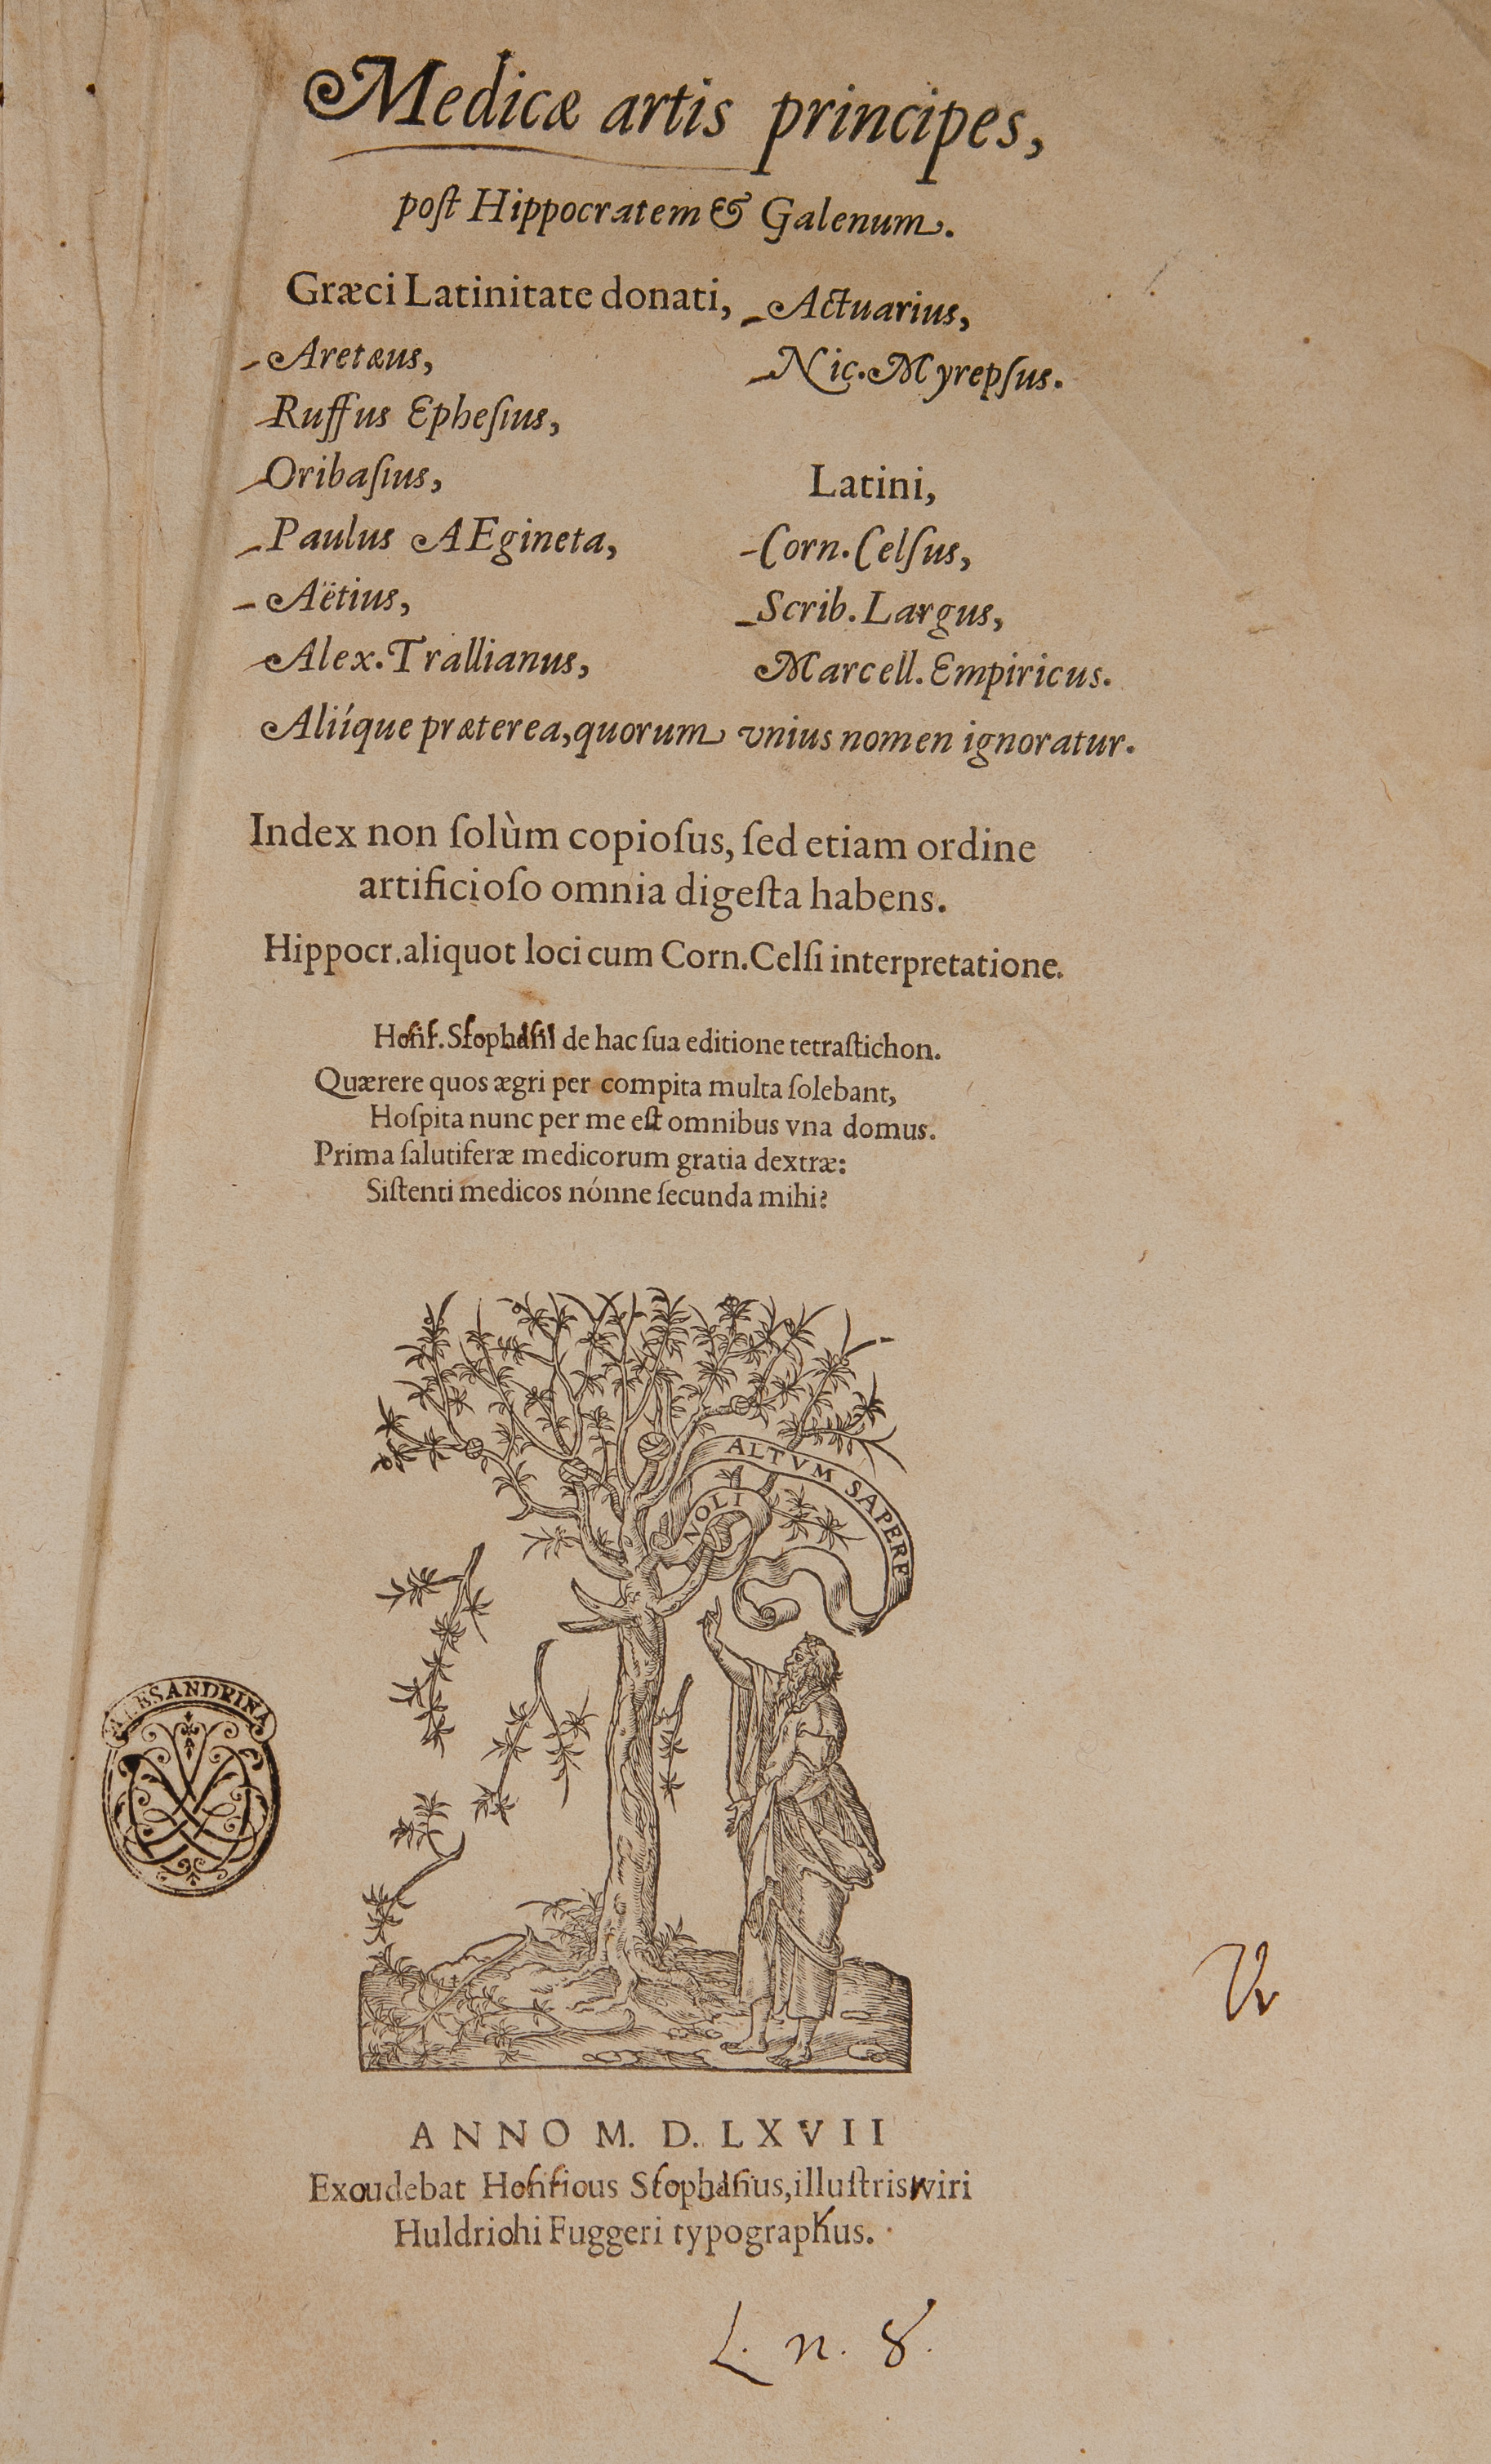 Medicæ artis principes,
poſt Hippocratem & Galenum.
Græci Latinitate donati,
Aretæus,
Ruffus Epheſius,
Oribaſius,
Paulus AEgineta,
Aëtius,
Alex. Trallianus,
Actuarius,
Nic. Myrepſus.
Latini,
Corn. Celſus,
Scrib. Largus,
Marcell. Empiricus.
Aliíque præterea, quorum vnius nomen ignoratur.
Index non ſolùm copioſus, ſed etiam ordine
artificioſo omnia digeſta habens.
Hippocr. aliquot loci cum Corn. Celſi interpretatione.
de hac ſua editione tetraſtichon.
Quærere quos ægri per compita multa ſolebant,
Hoſpita nunc per me eſt omnibus vna domus.
Prima ſalutiferæ medicorum gratia dextræ:
Siſtenti medicos nónne ſecunda mihi?
NOLI ALTVM SAPERE
ALESANDRINA
ANNO M. D. LXVII
Exoudebat illuſtris viri
Huldriohi Fuggeri typographus.
L. n. 8.